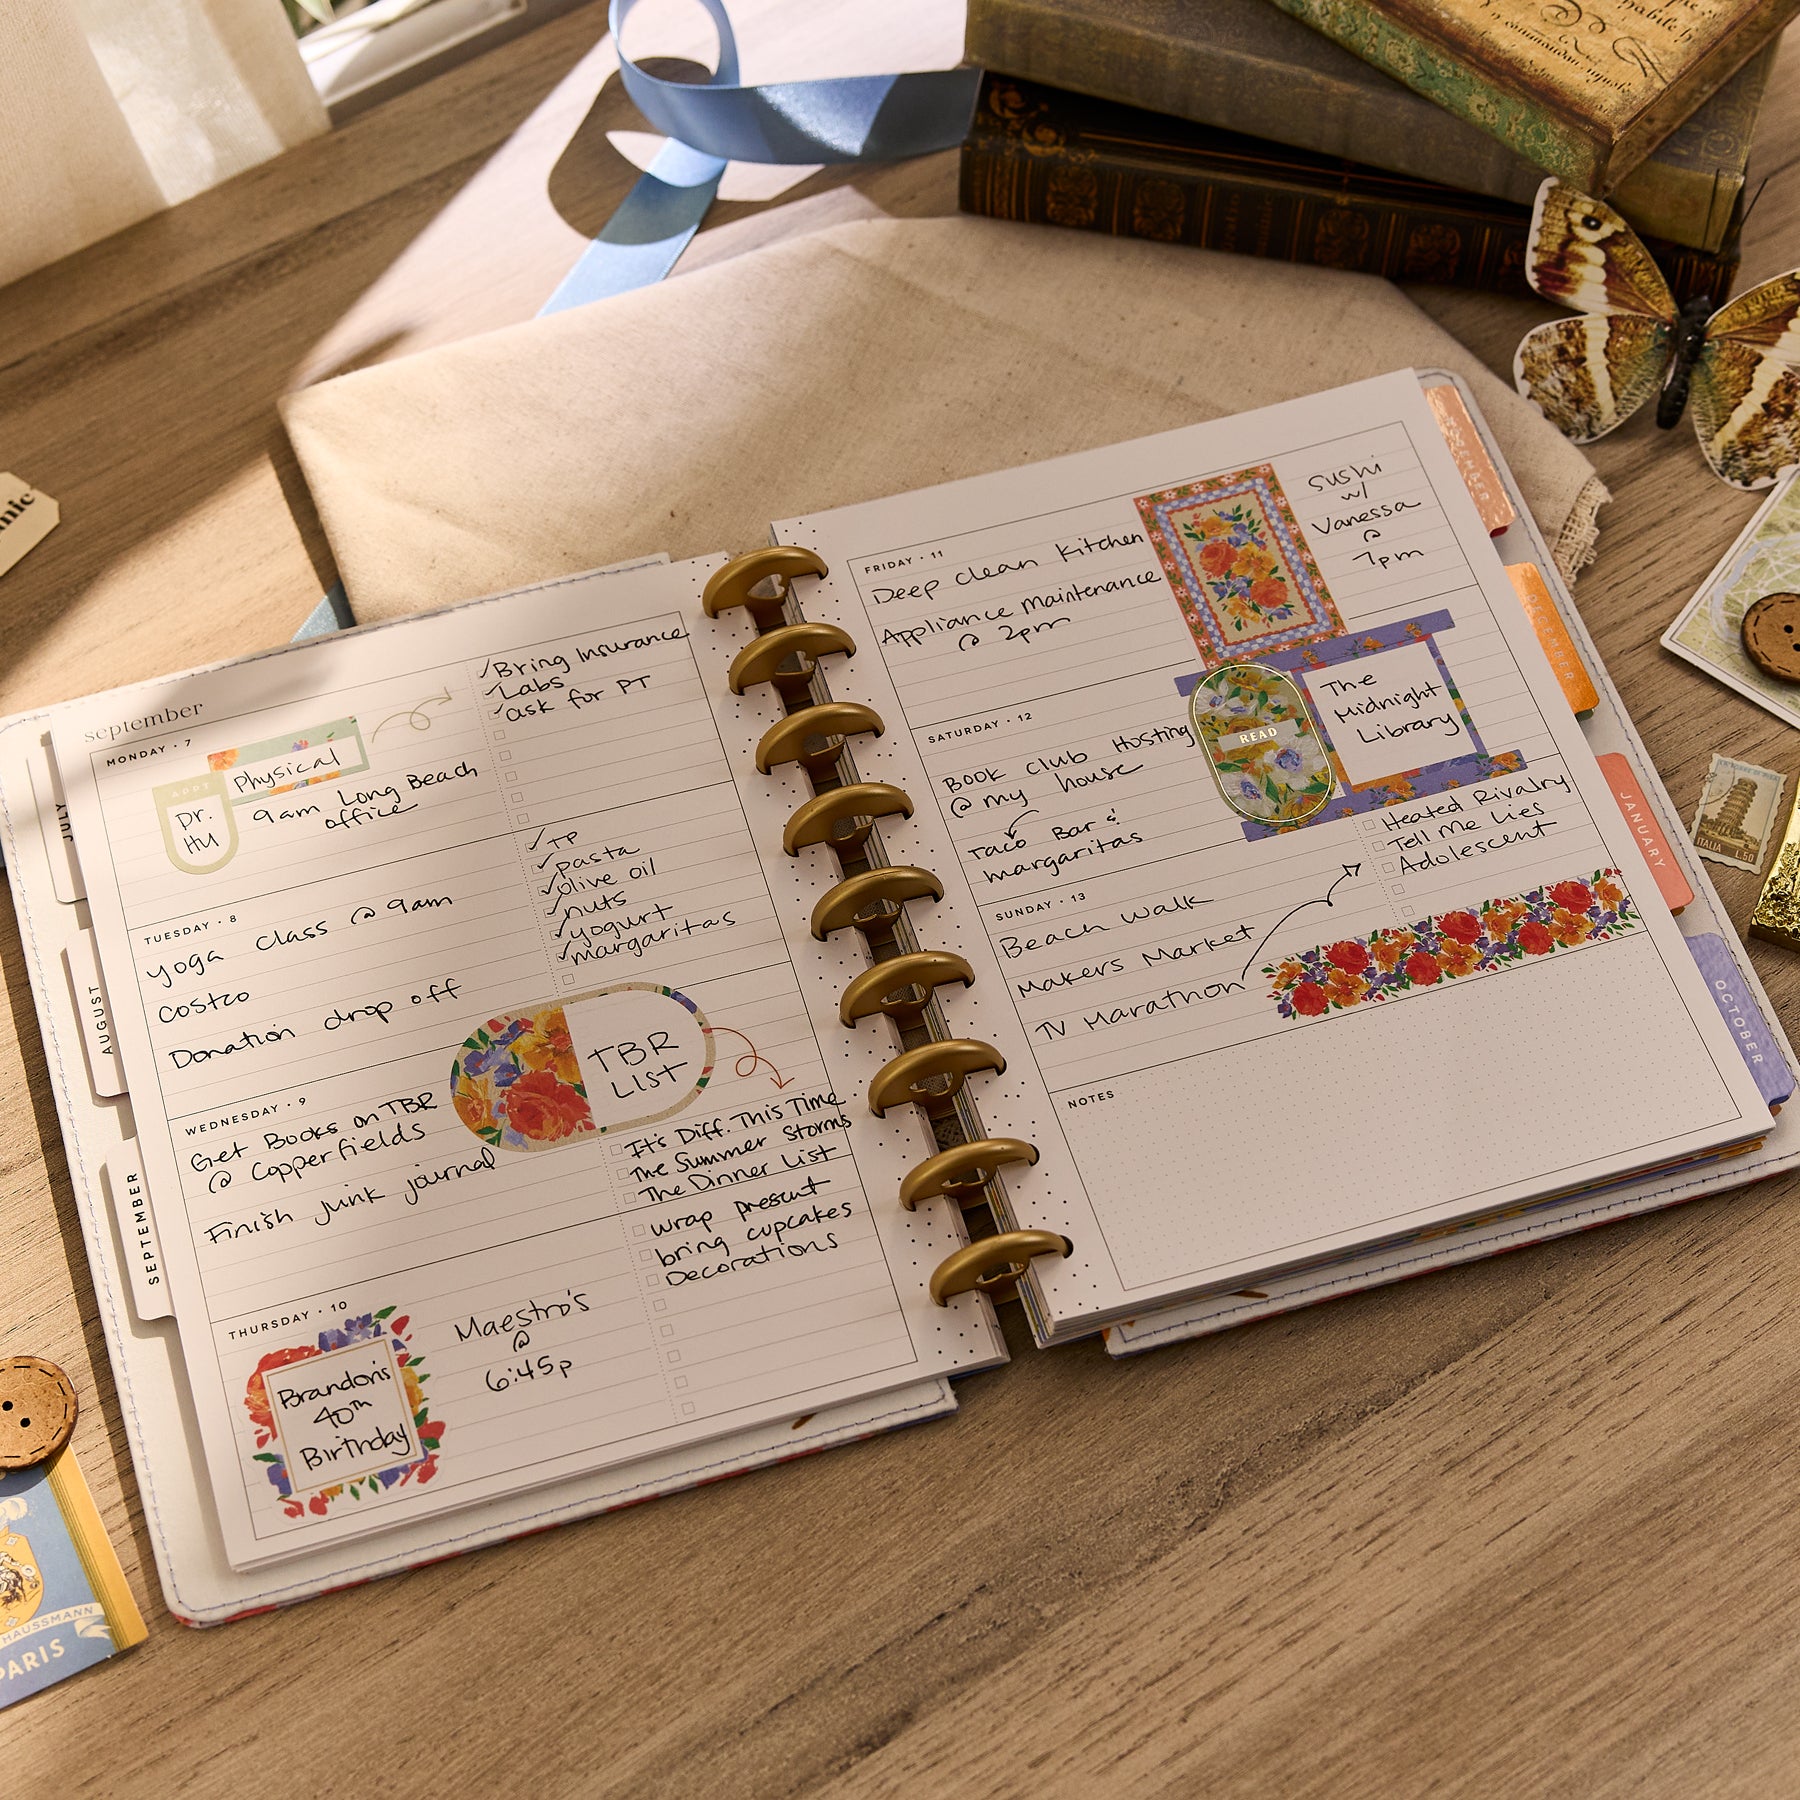 september
MONDAY · 7
APPT
Dr.
HU
Physical
9am Long Beach
office
Bring Insurance
Labs
ask for PT
TUESDAY · 8
Yoga Class @ 9am
Costco
Donation drop off
TP
pasta
olive oil
nuts
yogurt
margaritas
WEDNESDAY · 9
Get Books on TBR
@ Copperfields
Finish junk journal
TBR
List
It's Diff. This Time
The Summer Storms
The Dinner List
THURSDAY · 10
Brandon's
40th
Birthday
Maestro's
@
6:45p
wrap present
bring cupcakes
Decorations
FRIDAY · 11
Deep Clean Kitchen
Appliance Maintenance
@ 2pm
Sushi
w/
Vanessa
@
7pm
SATURDAY · 12
Book Club Hosting
@ my house
Taco Bar &
margaritas
READ
The
Midnight
Library
SUNDAY · 13
Beach Walk
Makers Market
TV Marathon
Heated Rivalry
Tell Me Lies
Adolescent
NOTES
JULY
AUGUST
SEPTEMBER
DECEMBER
JANUARY
OCTOBER
ITALIA L.50
HAUSSMANN
PARIS